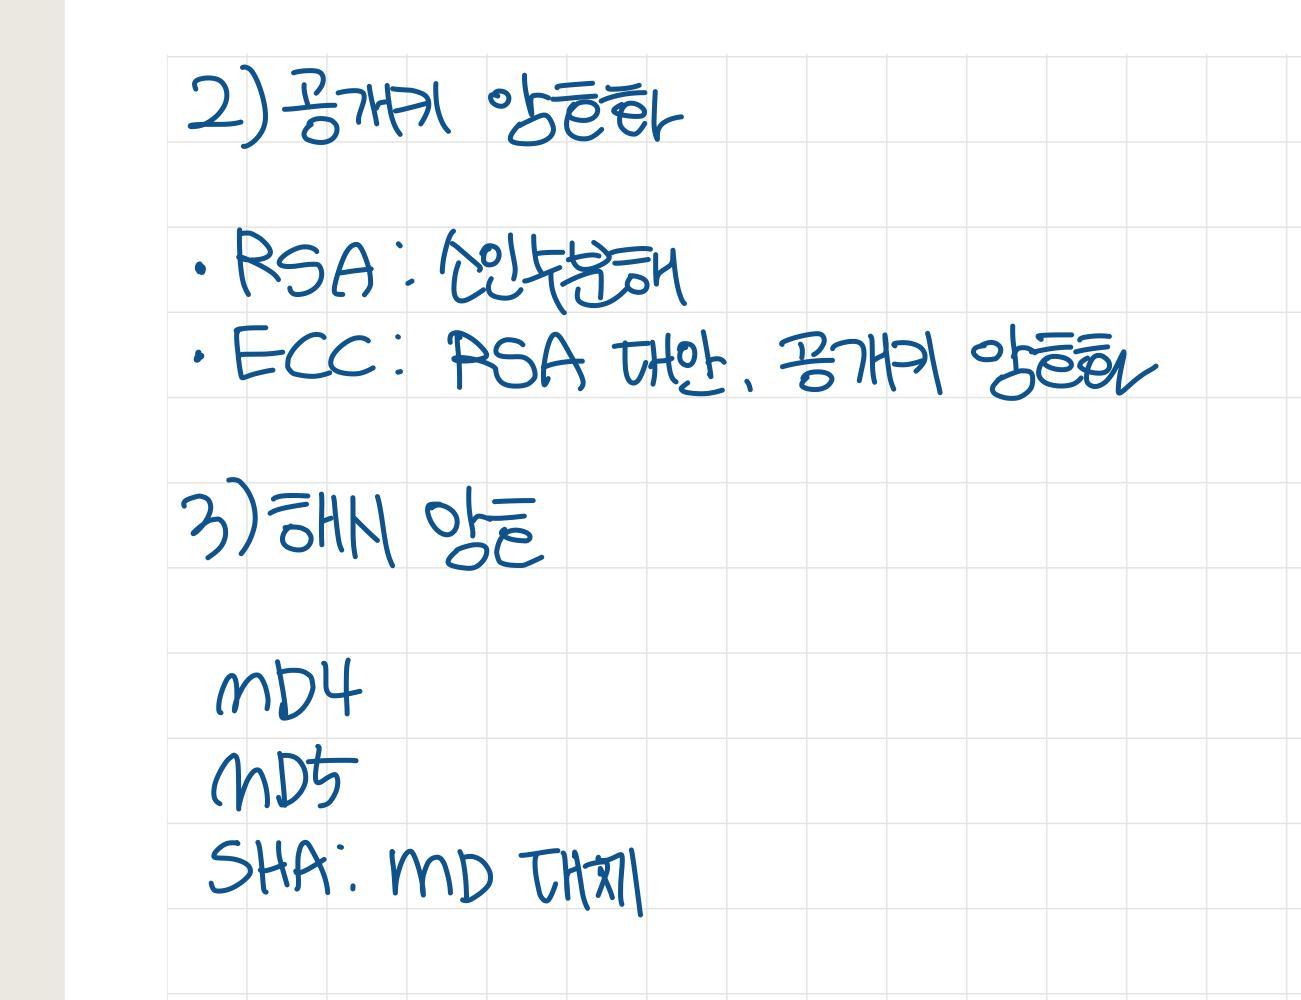 2) 공개키 암호화
• RSA : 소인수분해
• ECC : RSA 대안, 공개키 암호화
3) 해시 암호
MD4
MD5
SHA : MD 대체